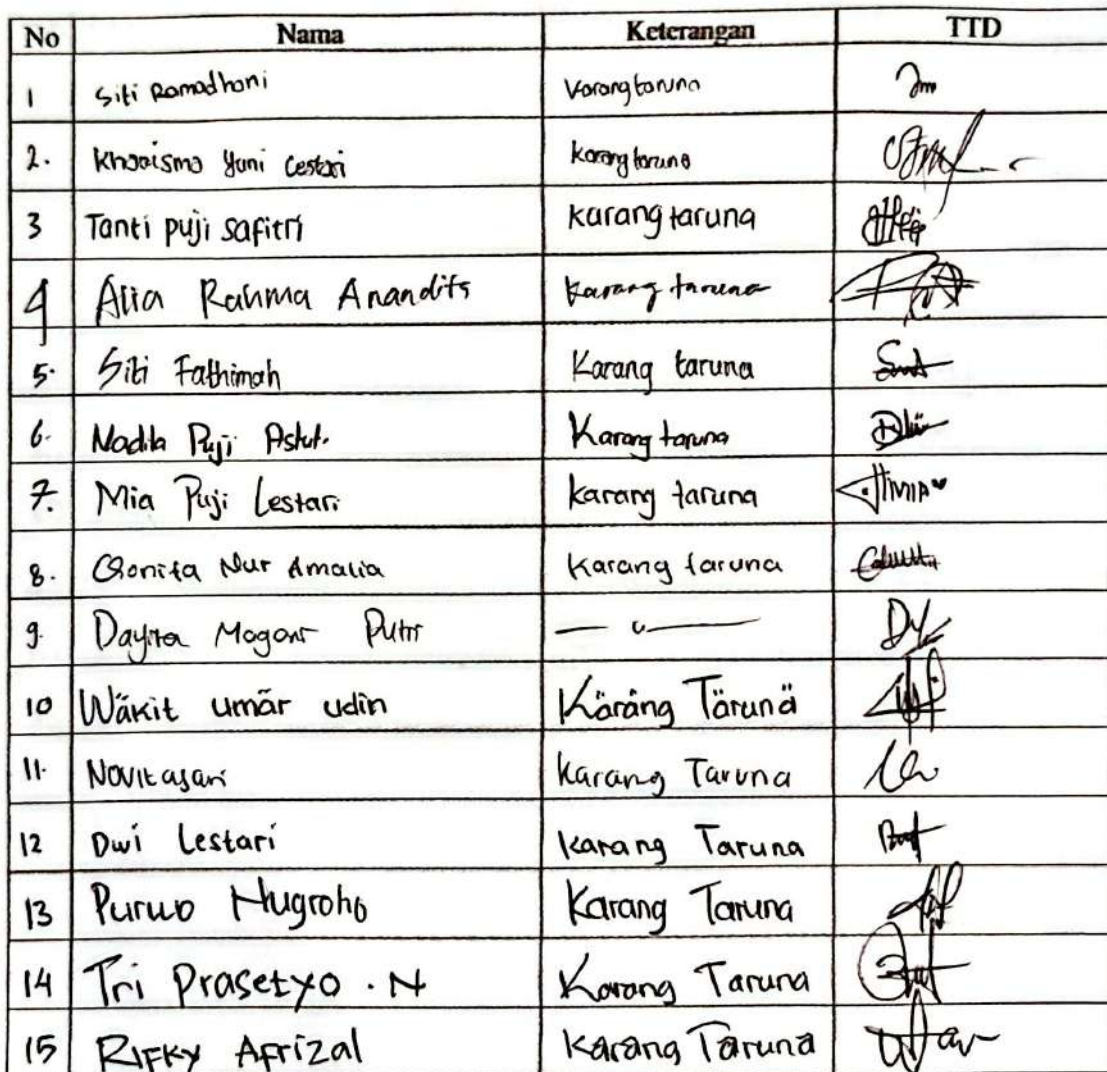 No Nama Keterangan TTD
1 Siti Ramadhani Karang taruna
2. Kharisma Yuni Lestari Karang taruna
3 Tanti puji safitri karang taruna
4 Alia Rahma Anandita karang taruna
5. Siti Fathimah Karang taruna
6. Nadila Puji Astuti Karang taruna
7. Mia Puji Lestari karang taruna
8. Qonita Nur Amalia Karang taruna
9. Putri — u —
10 Wäkit umär udin Käräng Tärunä
11. Novitasari Karang Taruna
12 Dwi Lestari karang Taruna
13 Purwo Nugroho Karang Taruna
14 Tri Prasetyo . N Karang Taruna
15 Rifky Afrizal Karang Taruna